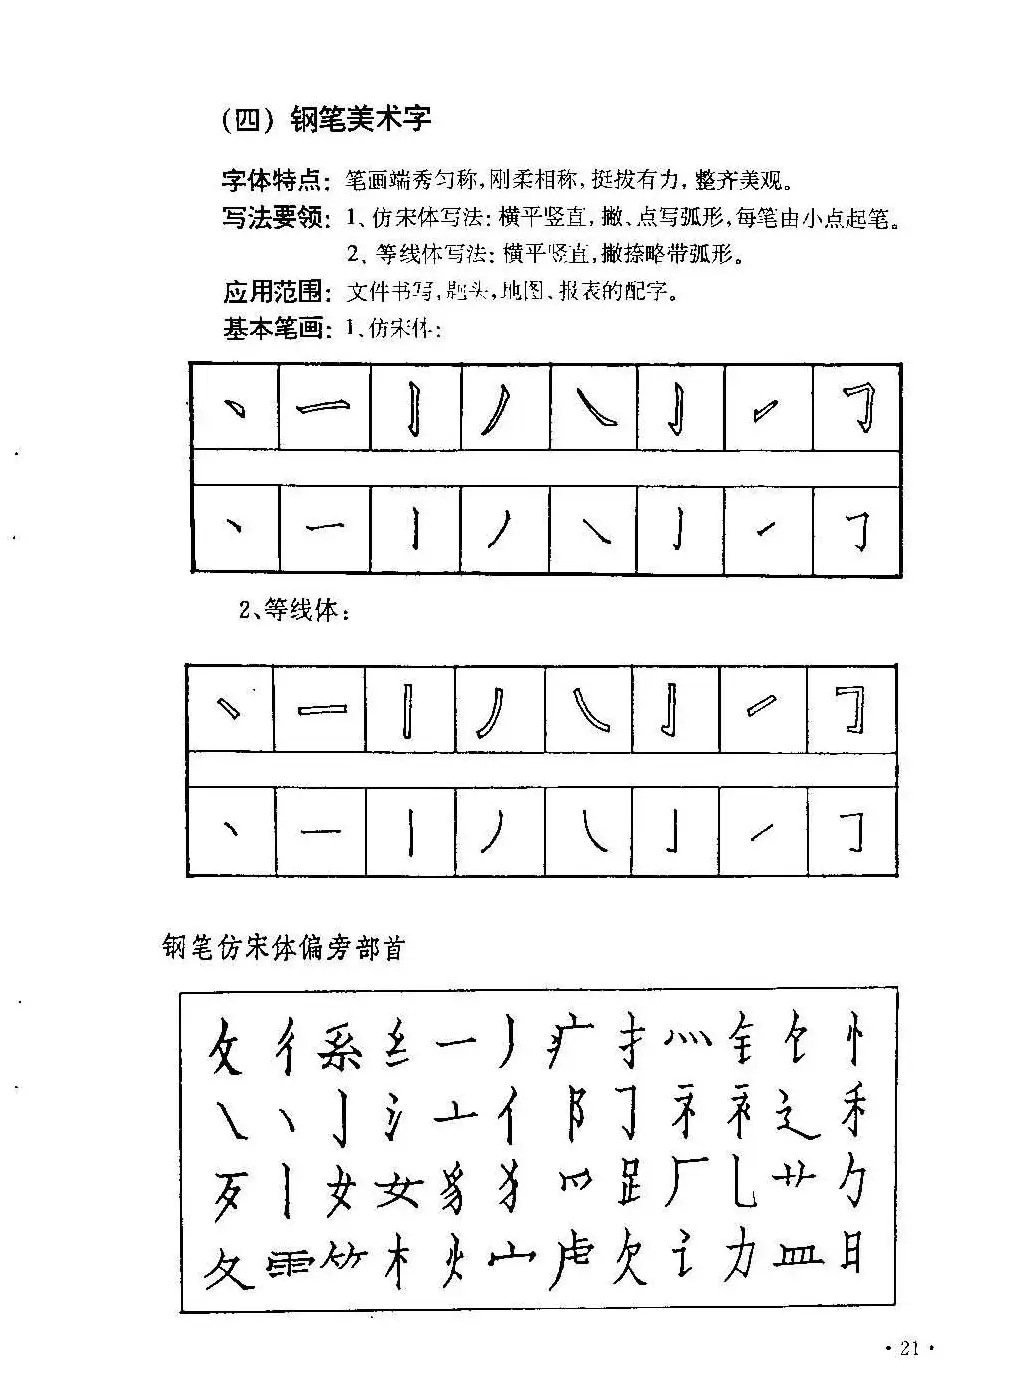 （四）钢笔美术字
字体特点：笔画端秀匀称，刚柔相称，挺拔有力，整齐美观。
写法要领：1、仿宋体写法：横平竖直，撇、点写弧形，每笔由小点起笔。
2、等线体写法：横平竖直，撇捺略带弧形。
应用范围：文件书写，题头，地图、报表的配字。
基本笔画：1、仿宋体：
丶 一 丨 丿 ㇏ 亅 ㇀ ㇆
丶 一 丨 丿 ㇏ 亅 ㇀ ㇆
2、等线体：
丶 一 丨 丿 ㇏ 亅 ㇀ ㇆
丶 一 丨 丿 ㇏ 亅 ㇀ ㇆
钢笔仿宋体偏旁部首
攵 彳 系 纟 一 丿 疒 扌 灬 钅 饣 忄
㇏ 丶 亅 氵 亠 亻 阝 ㇆ 礻 衤 辶 禾
歹 丨 女 女 豸 犭 罒 𧾷 厂 乚 艹 勹
夂 雨 𥫗 木 火 宀 虍 欠 讠 力 皿 日
· 21 ·